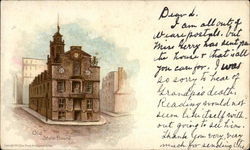 Dear L.
I am all out of
but
Mrs Gerry has sent
to house & that's all
you care for. I was
so sorry to hear of
Grandpa's death.
Reading would not
seem like itself with-
out going to see him.
Thank you very very
much for sending
Old
State House